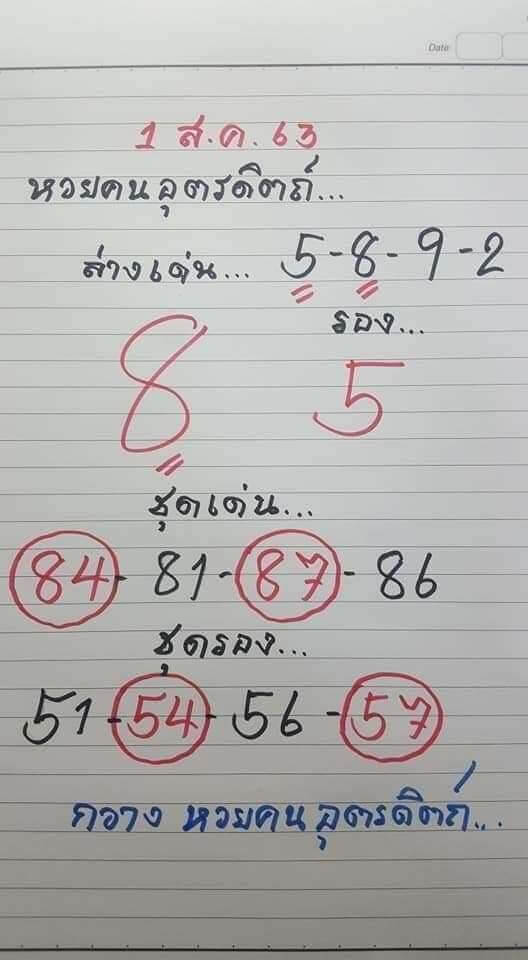 Date
1 ส.ค. 63
หวยคนอุตรดิตถ์...
ล่างเด่น... 5-8-9-2
รอง...
8 5
ชุดเด่น...
84-81-87-86
ชุดรอง...
51-54-56-57
กวาง หวยคนอุตรดิตถ์...